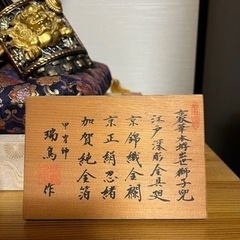 豪華本将世獅子兜
江戸深彫金具廻
京錦織金襴
京正絹忍緒
加賀純金箔
甲冑師
瑞鳥 作